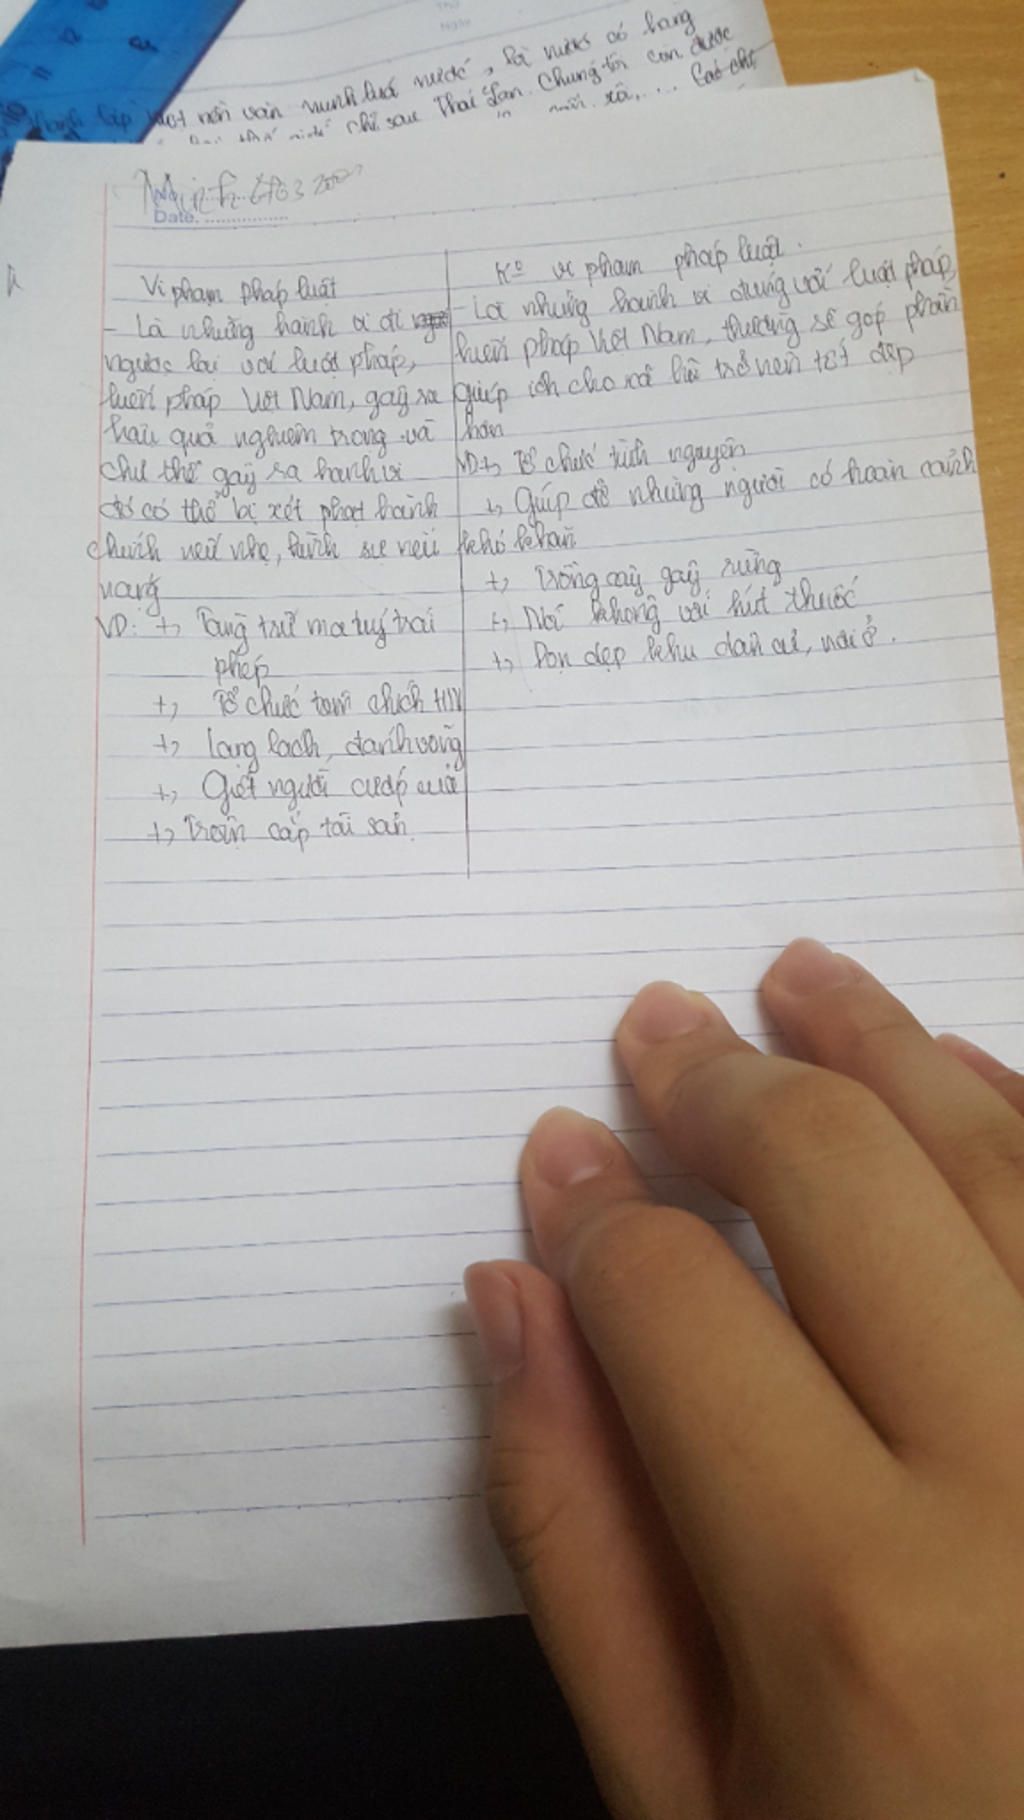 Thứ
Ngày
một nền văn minh lúa nước, là nước có hàng
chỉ sau Thái Lan. Chúng tôi còn được
Minh
Date.
Vi phạm pháp luật
- Là những hành vi đi
ngược lại với luật pháp,
hiến pháp Việt Nam, gây ra
hậu quả nghiêm trọng và
chủ thể gây ra hành vi
đó có thể bị xét phạt hành
chính nếu nhẹ, hình sự nếu
nặng
VD: +, Tàng trữ ma tuý trái
phép
+, Tổ chức tiêm chích HIV
+, Lạng lách, đánh võng
+, Giết người cướp của
+, Trộm cắp tài sản.
Ko vi phạm pháp luật.
- Là những hành vi đúng với luật pháp,
hiến pháp Việt Nam, thường sẽ góp phần
giúp ích cho xã hội trở nên tốt đẹp
hơn
VD +, Tổ chức tình nguyện
+, Giúp đỡ những người có hoàn cảnh
khó khăn
+, Trồng cây gây rừng
+, Nói không với hút thuốc
+, Dọn dẹp khu dân cư, nơi ở.